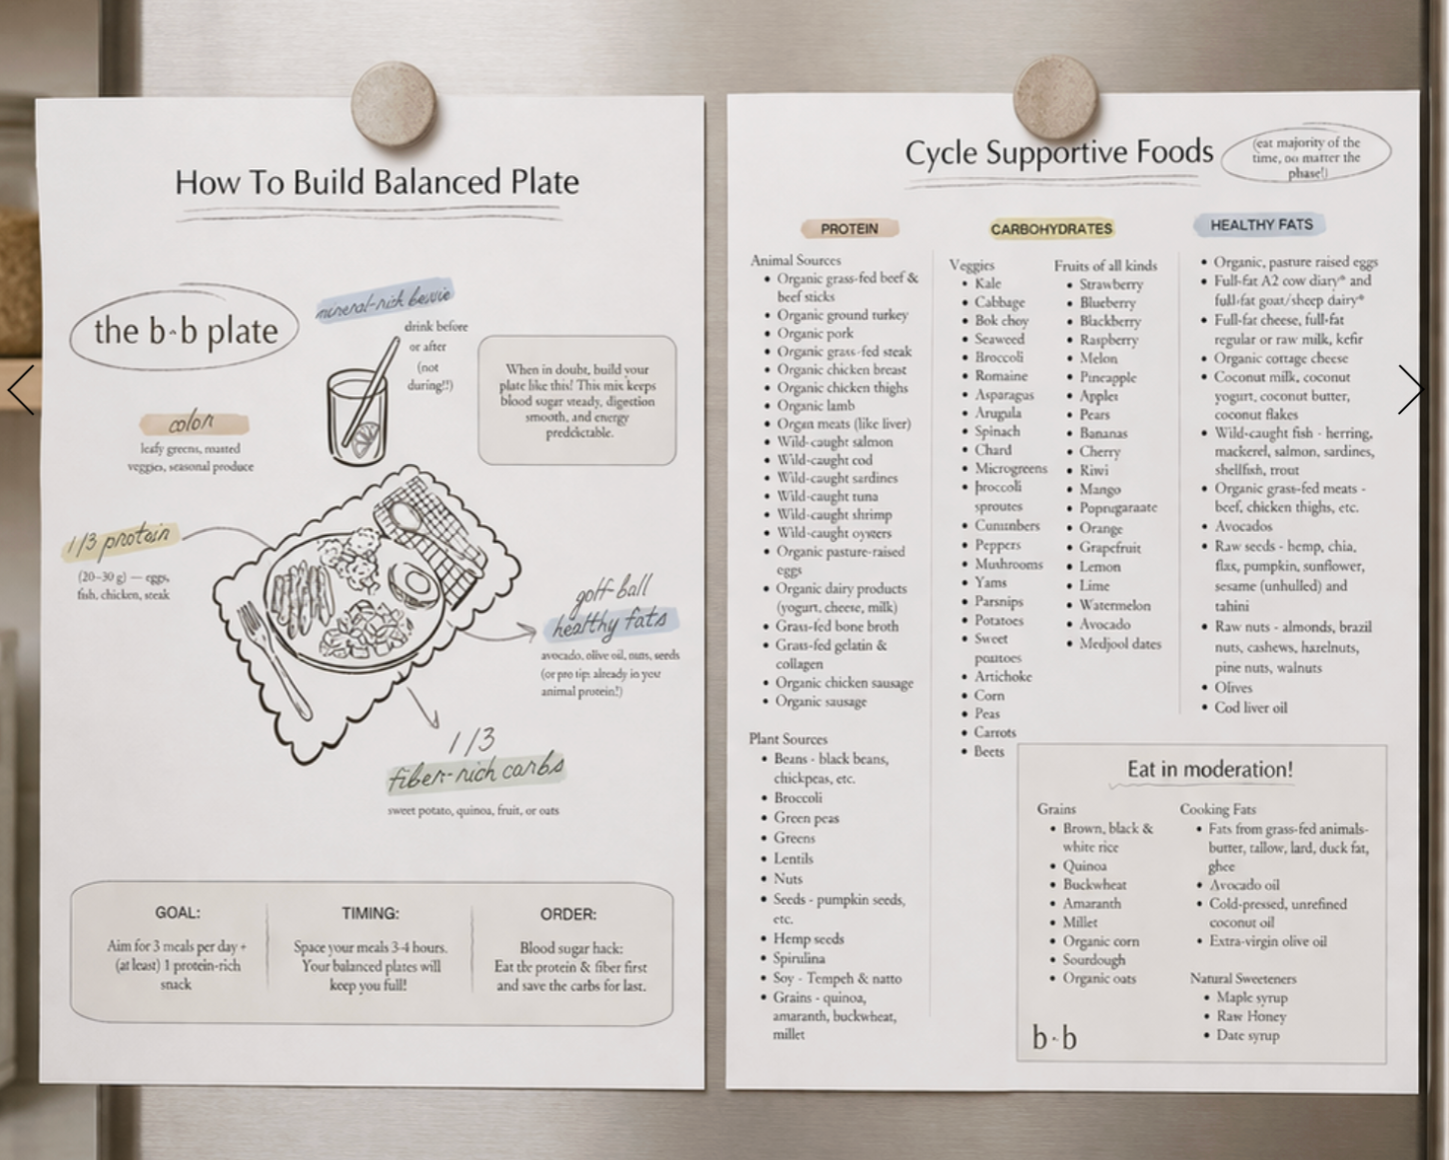 How To Build Balanced Plate
the b·b plate
mineral-rich bevvie
drink before
or after
(not
during!!)
When in doubt, build your
plate like this! This mix keeps
blood sugar steady, digestion
smooth, and energy
predictable.
color
leafy greens, roasted
veggies, seasonal produce
1/3 protein
(20-30 g) — eggs,
fish, chicken, steak
golf-ball
healthy fats
avocado, olive oil, nuts, seeds
(or pro tip: already in your
animal protein!)
1/3
fiber-rich carbs
sweet potato, quinoa, fruit, or oats
GOAL:
Aim for 3 meals per day +
(at least) 1 protein-rich
snack
TIMING:
Space your meals 3-4 hours.
Your balanced plates will
keep you full!
ORDER:
Blood sugar hack:
Eat the protein & fiber first
and save the carbs for last.
Cycle Supportive Foods
(eat majority of the
time, no matter the
phase!)
PROTEIN
Animal Sources
• Organic grass-fed beef &
beef sticks
• Organic ground turkey
• Organic pork
• Organic grass-fed steak
• Organic chicken breast
• Organic chicken thighs
• Organic lamb
• Organ meats (like liver)
• Wild-caught salmon
• Wild-caught cod
• Wild-caught sardines
• Wild-caught tuna
• Wild-caught shrimp
• Wild-caught oysters
• Organic pasture-raised
eggs
• Organic dairy products
(yogurt, cheese, milk)
• Grass-fed bone broth
• Grass-fed gelatin &
collagen
• Organic chicken sausage
• Organic sausage
Plant Sources
• Beans - black beans,
chickpeas, etc.
• Broccoli
• Green peas
• Greens
• Lentils
• Nuts
• Seeds - pumpkin seeds,
etc.
• Hemp seeds
• Spirulina
• Soy - Tempeh & natto
• Grains - quinoa,
amaranth, buckwheat,
millet
CARBOHYDRATES
Veggies
• Kale
• Cabbage
• Bok choy
• Seaweed
• Broccoli
• Romaine
• Asparagus
• Arugula
• Spinach
• Chard
• Microgreens
• broccoli
sproutes
• Cumınbers
• Peppers
• Mushrooms
• Yams
• Parsnips
• Potatoes
• Sweet
poutoes
• Artichoke
• Corn
• Peas
• Carrots
• Beets
Fruits of all kinds
• Strawberry
• Blueberry
• Blackberry
• Raspberry
• Melon
• Pineapple
• Apples
• Pears
• Bananas
• Cherry
• Kiwi
• Mango
• Poprugaraate
• Orange
• Grapefruit
• Lemon
• Lime
• Watermelon
• Avocado
• Medjool dates
HEALTHY FATS
• Organic, pasture raised eggs
• Full-fat A2 cow diary* and
full-fat goat/sheep dairy*
• Full-fat cheese, full-fat
regular or raw milk, kefir
• Organic cottage cheese
• Coconut milk, coconut
yogurt, coconut butter,
coconut flakes
• Wild-caught fish - herring,
mackerel, salmon, sardines,
shellfish, trout
• Organic grass-fed meats -
beef, chicken thighs, etc.
• Avocados
• Raw seeds - hemp, chia,
flax, pumpkin, sunflower,
sesame (unhulled) and
tahini
• Raw nuts - almonds, brazil
nuts, cashews, hazelnuts,
pine nuts, walnuts
• Olives
• Cod liver oil
Eat in moderation!
Grains
• Brown, black &
white rice
• Quinoa
• Buckwheat
• Amaranth
• Millet
• Organic corn
• Sourdough
• Organic oats
Cooking Fats
• Fats from grass-fed animals-
butter, tallow, lard, duck fat,
ghee
• Avocado oil
• Cold-pressed, unrefined
coconut oil
• Extra-virgin olive oil
Natural Sweeteners
• Maple syrup
• Raw Honey
• Date syrup
b·b